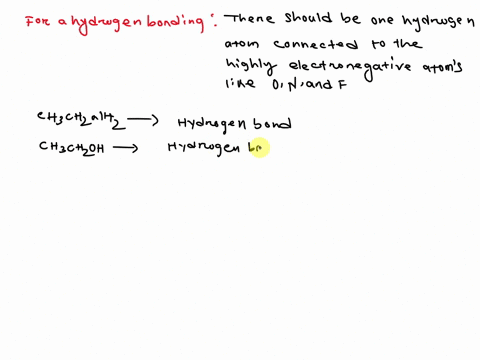 For a hydrogen bonding : There should be one hydrogen
atom connected to the
highly electronegative atom's
like O, N, and F
CH3CH2NH2 → Hydrogen bond
CH3CH2OH → Hydrogen bo